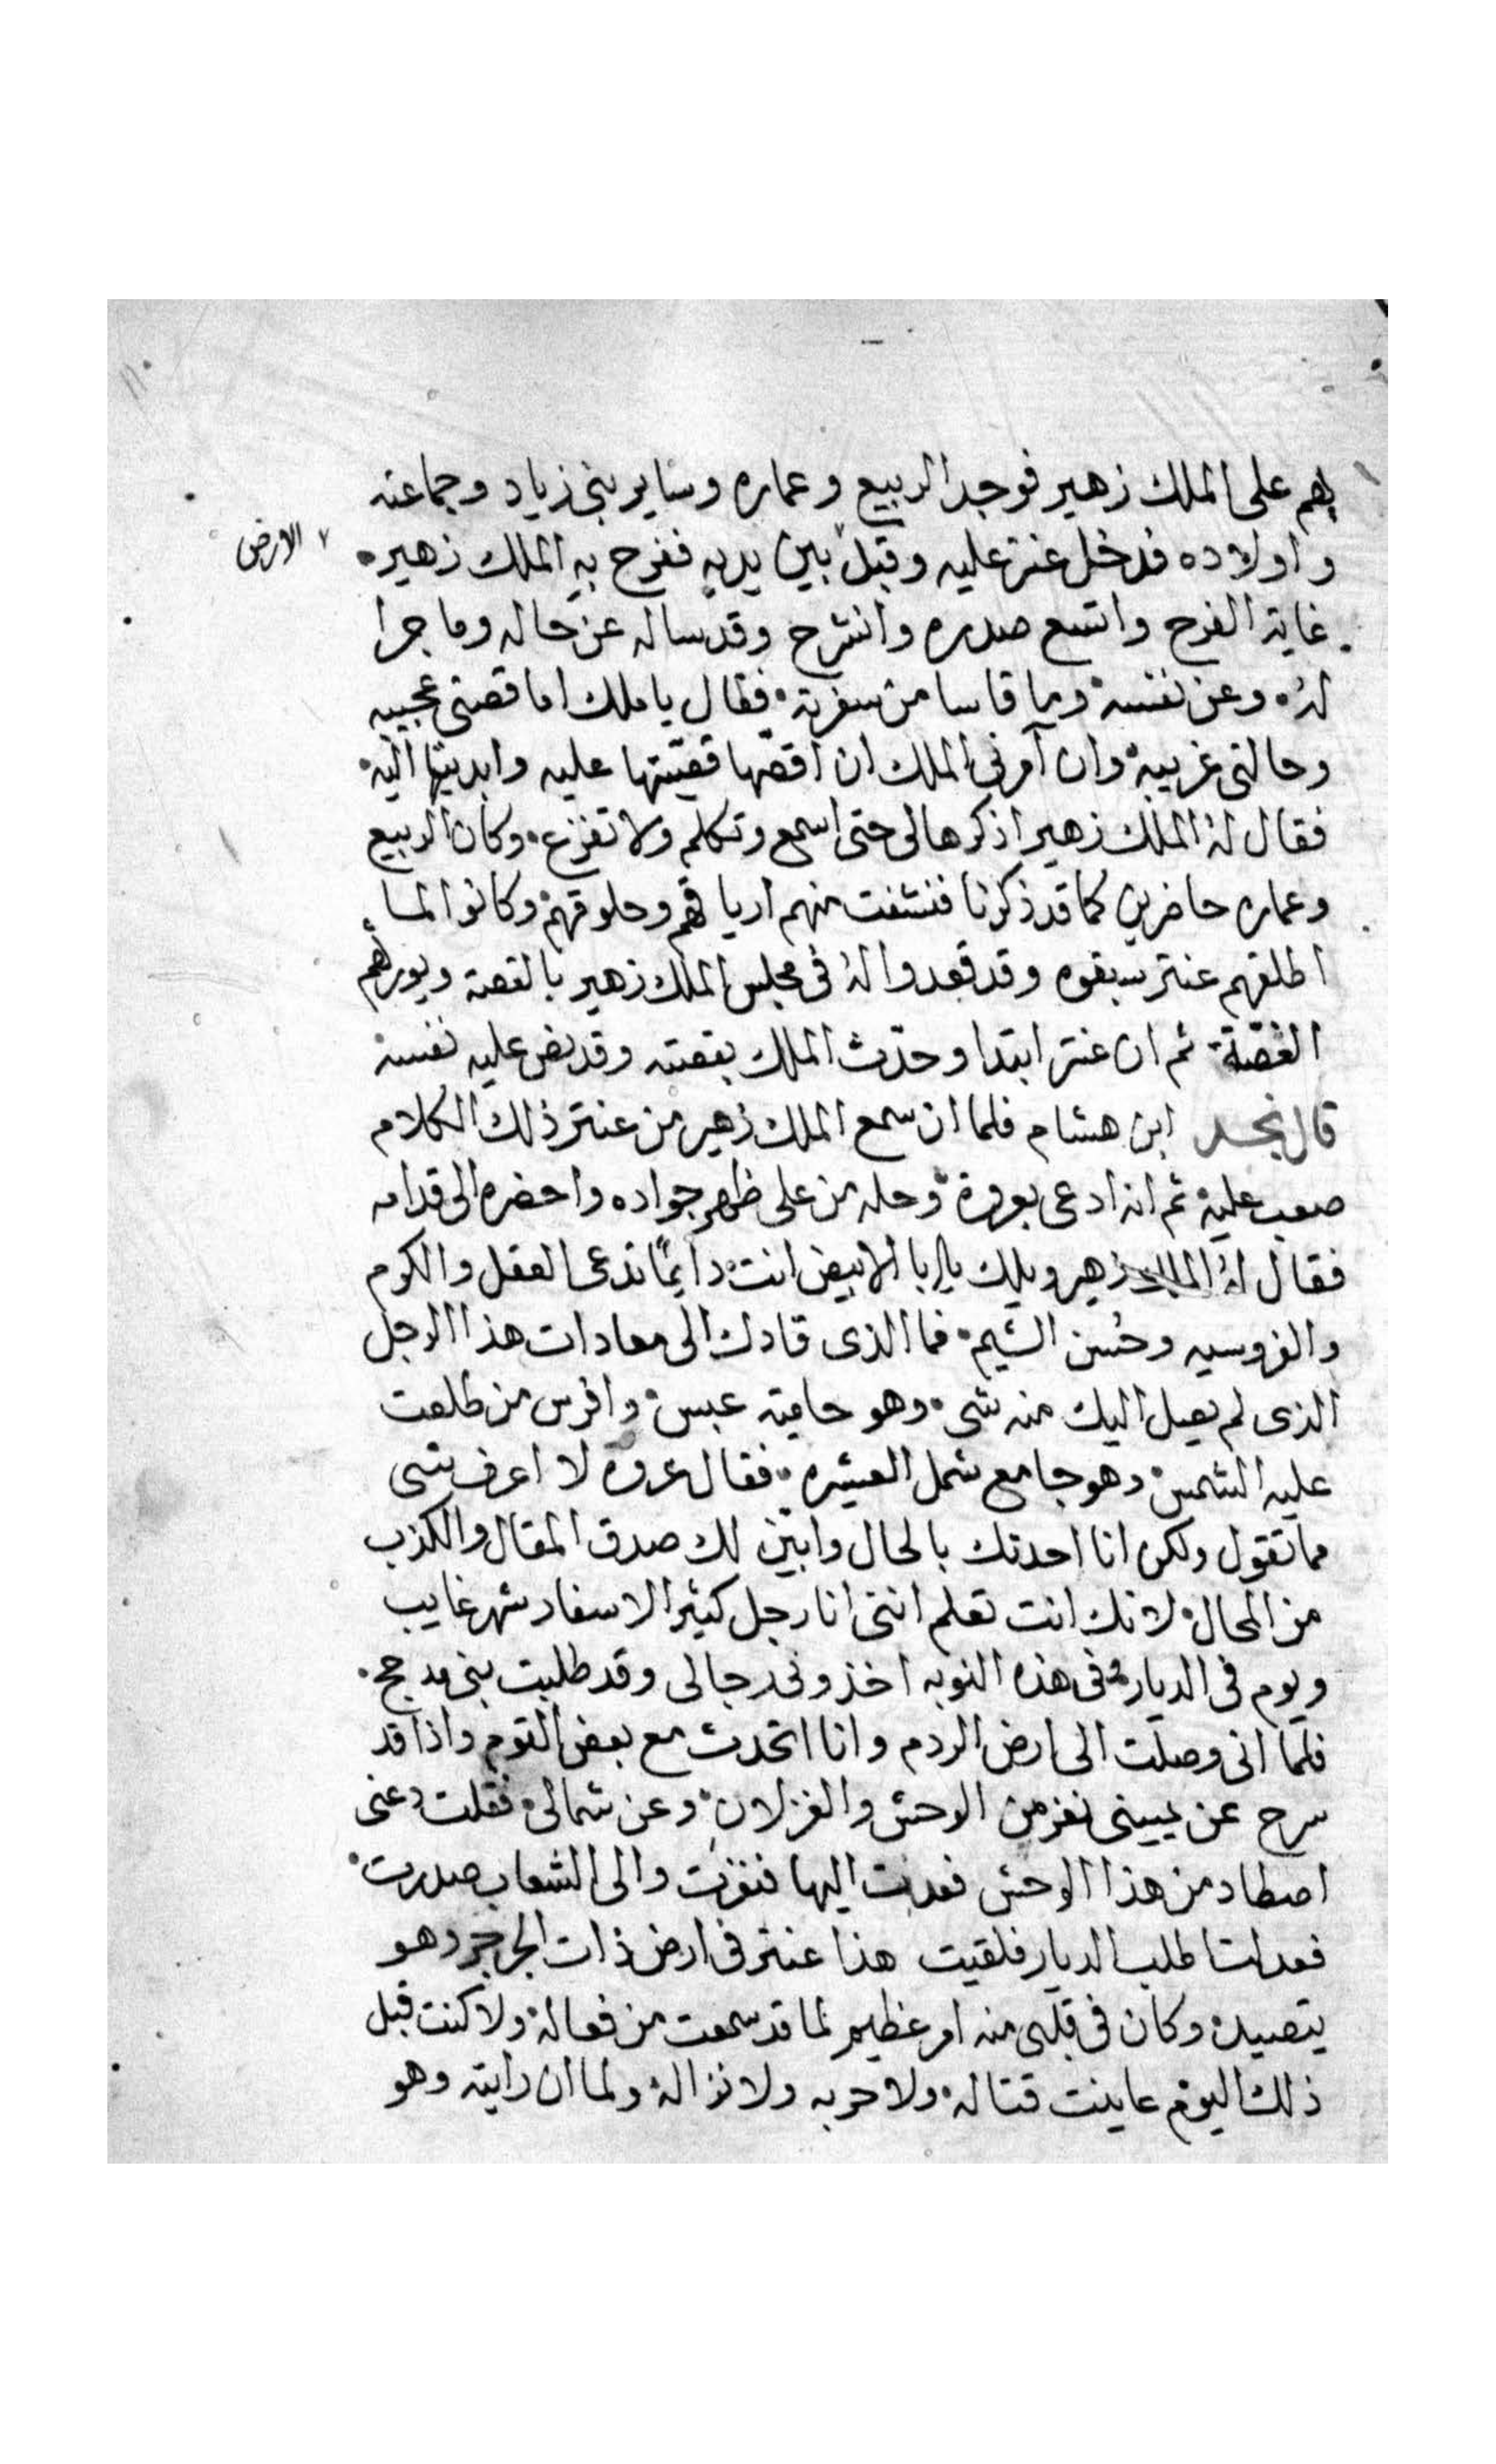 بهم على الملك زهير فوجد الربيع وعماره وساير بنى زياد وجماعته
واولاده فدخل عنتر عليه وقبل بين يديه ففرح به الملك زهير
الارض
غاية الفرح واتسع صدره وانشرح وقد ساله عن حاله وما جرا
له وعن نفسه وما قاسا من سفرته فقال يا ملك اما قصتى عجيبه
وحالتى غريبة وان آمرنى الملك ان اقصها قصيتها عليه وابديتها اليه
فقال له الملك زهير اذكرها لى حتى اسمع وتكلم ولا تفزع وكان الربيع
وعماره حاضرين كما قد ذكرنا فنشفت منهم ارياقهم وحلوقهم وكانوا لما
اطلقهم عنتر سبقوه وقد قعدوا له فى مجلس الملك زهير بالقصة ويورهم
الغصّة ثم ان عنتر ابتدا وحدّث الملك بقصته وقد نص عليه نفسه
قال نجد ابن هشام فلما ان سمع الملك زهير من عنتر ذلك الكلام
صعب عليه ثم انه ادعى بعروة وحله من على ظهر جواده واحضره الى قدامه
فقال له الملك زهير ويلك يا ابا الابيض انت دايمًا تدعى العقل والكرم
والفروسيه وحُسن الشيم فما الذى قادك الى معادات هذا الرجل
الذى لم يصل اليك منه شى وهو حامية عبس وافرس من طلعت
عليه الشمس وهو جامع شمل العشيره فقال عروة لا اعرف شى
مما تقول ولكن انا احدثك بالحال وابين لك صدق المقال والكذب
من المحال لانك انت تعلم اننى انا رجل كثير الاسفار شهر غايب
ويوم فى الديار وفى هذه النوبه اخذونى رجالى وقد طلبت بنى مدحج
فلما انى وصلت الى ارض الردم وانا اتحدث مع بعض القوم واذا قد
سرح عن يمينى نفر من الوحش والغزلان وعن شمالى فقلت دعنى
اصطاد من هذا الوحش فعدت اليها فنفرت والى الشعاب صدرت
فعدت اطلب الديار فلقيت هذا عنتر فى ارض ذات الجرجر وهو
يتصيد وكان فى قلبى منه امر عظيم لما قد سمعت من فعاله ولا كنت قبل
ذلك اليوم عاينت قتاله ولا حربه ولا نزاله ولما ان رايته وهو